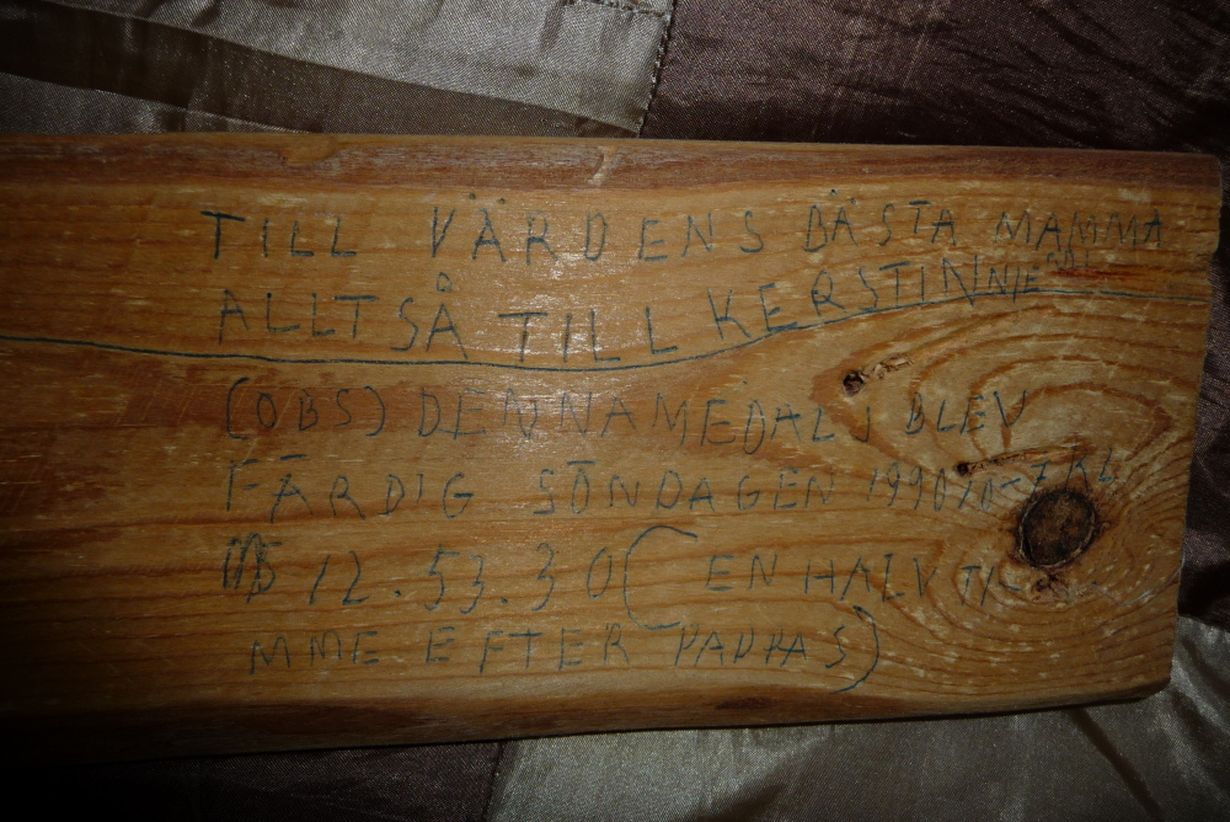 TILL VÄRDENS BÄSTA MAMMA
ALLTSÅ TILL KERSTINNIE
(OBS) DENNA MEDALJ BLEV
FÄRDIG SÖNDAGEN 1990 10-7 KL
12.53.30 (EN HALV TI-
MME EFTER PAPPAS)